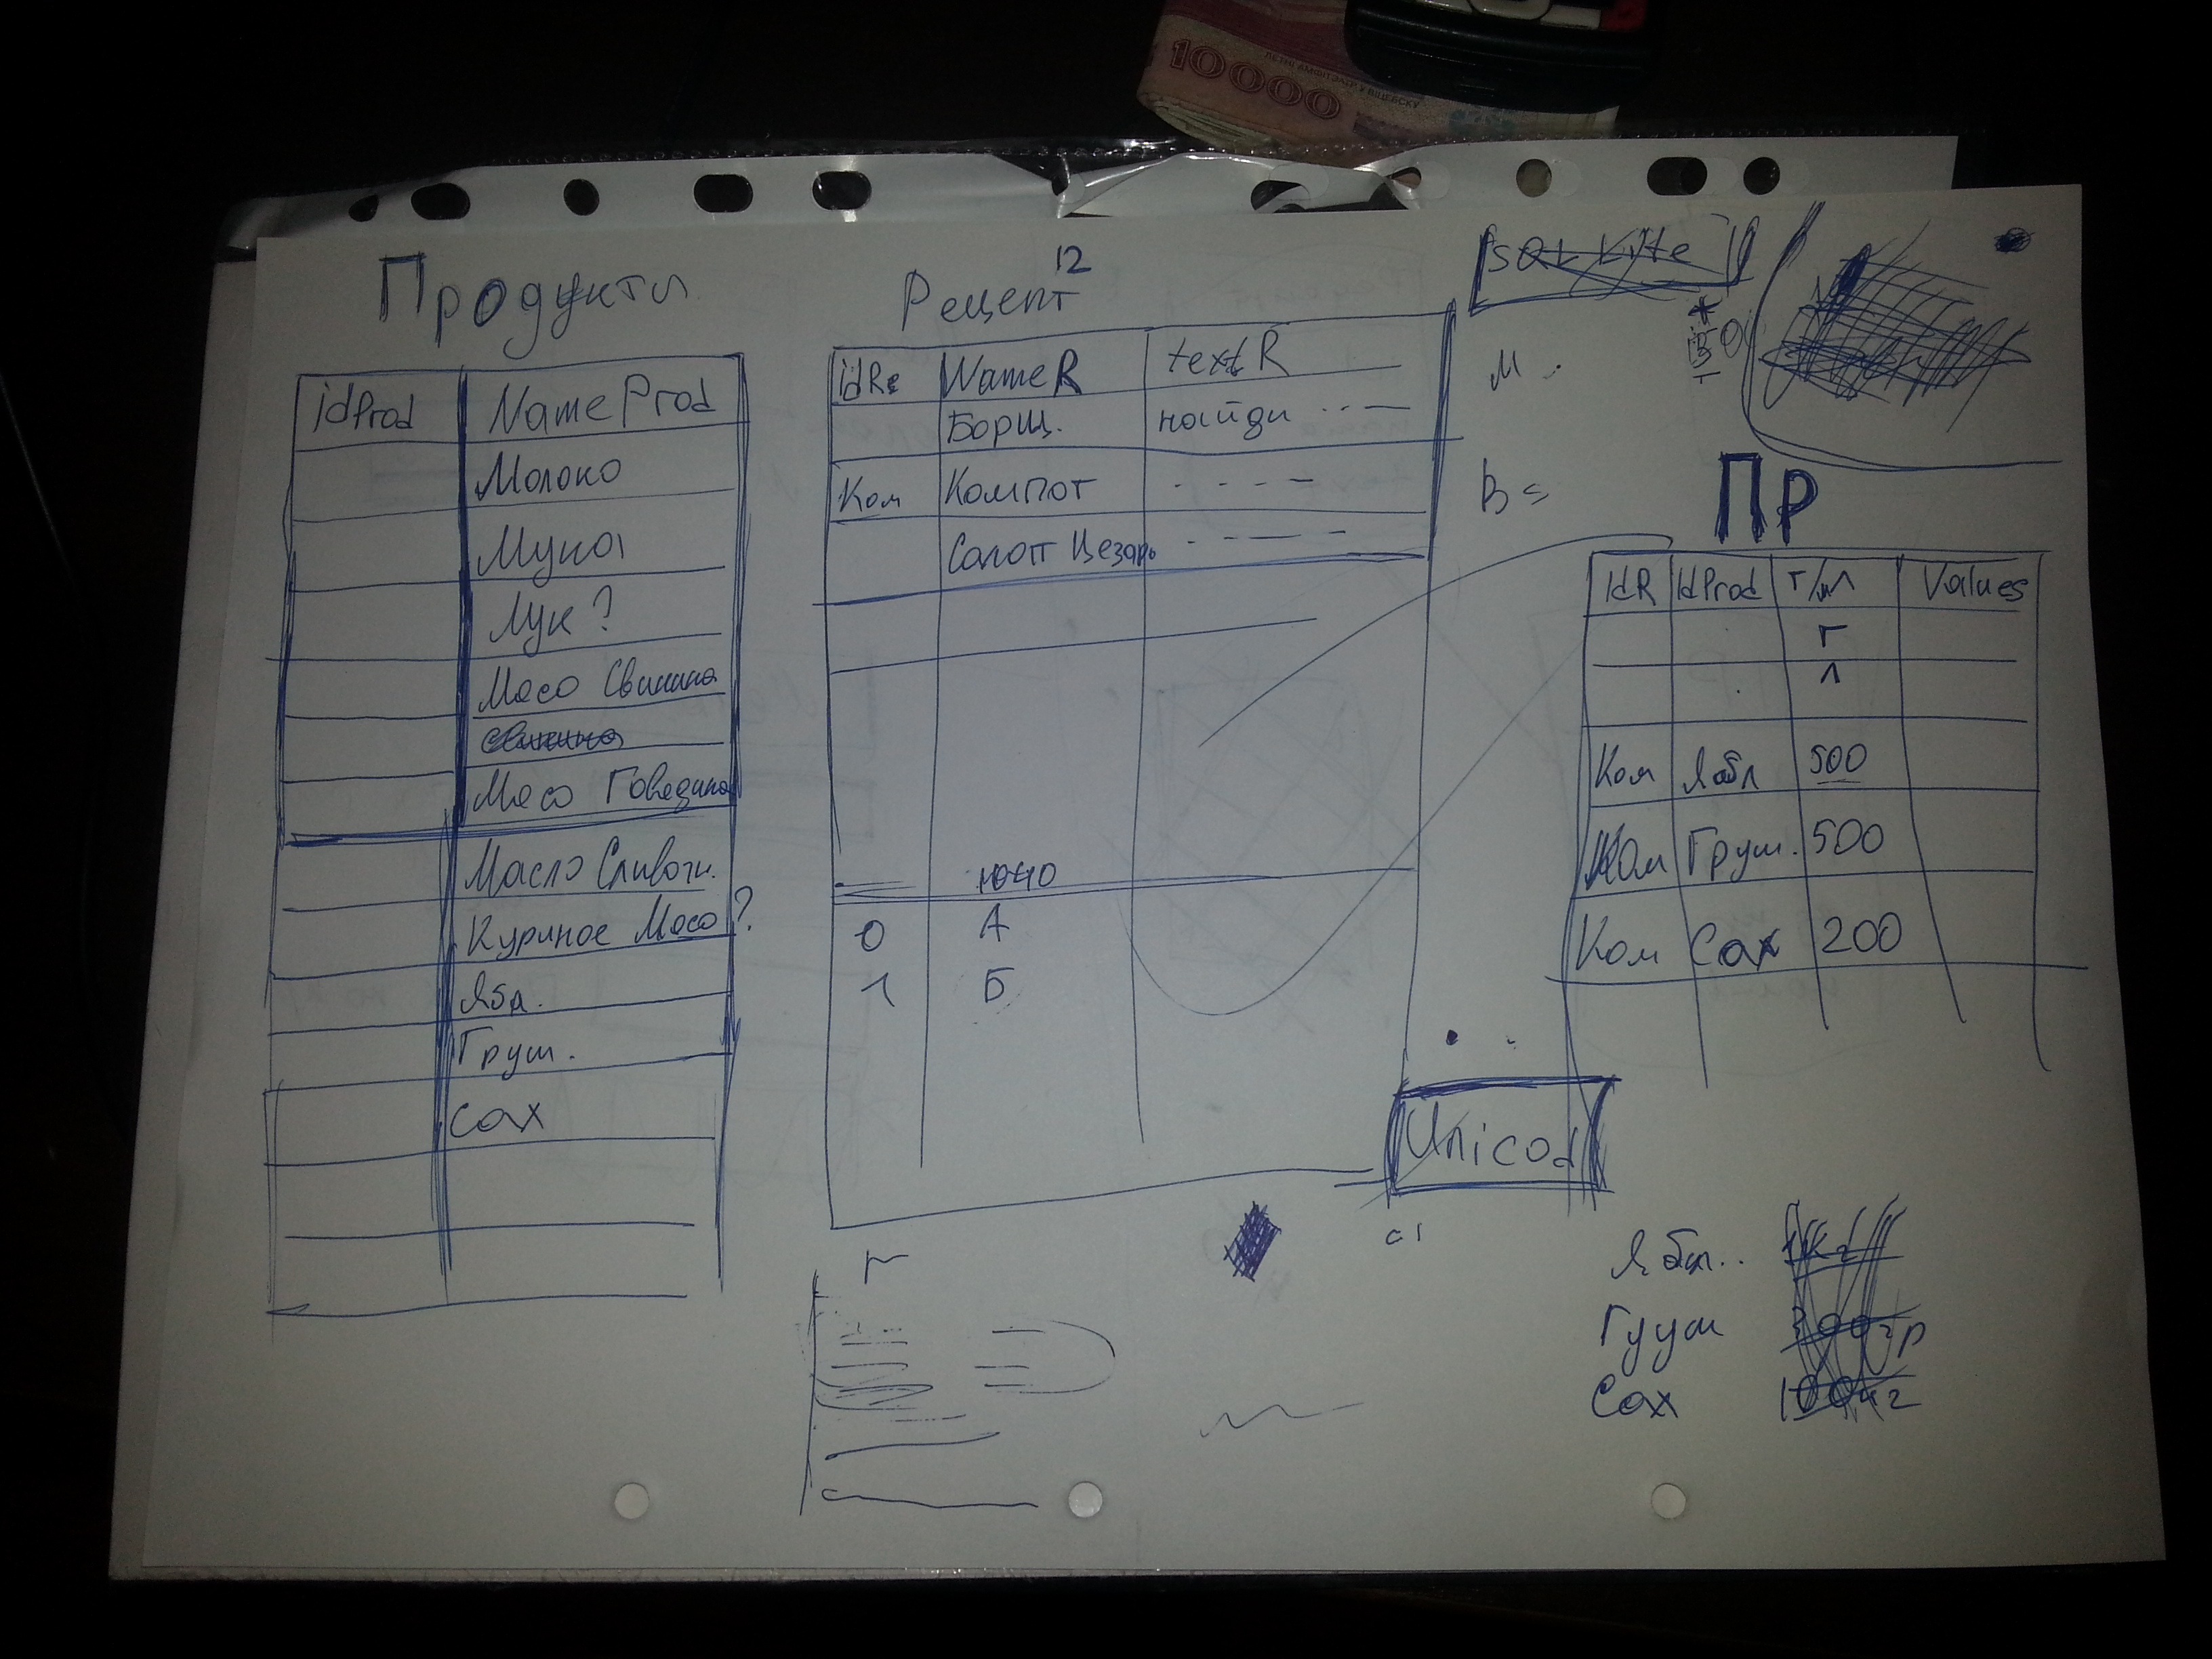 10000
Продукты
idProd NameProd
Молоко
Мука
Лук ?
Мясо Свинина
свинина
Мясо Говядина
Масло Сливочн.
Куриное Мясо ?
Ябл.
Груш.
Сах
12
Рецепт
idRe NameR textR
Борщ. найди
Ком Компот
Салат Цезарь
0 А
1 Б
SQL Lyte
М
В =
ПР
IdR IdProd г/мл Values
г
л
Ком Ябл 500
Ком Груш. 500
Ком Сах 200
Unicod
Ябл..
Гууш 300гр
Сах